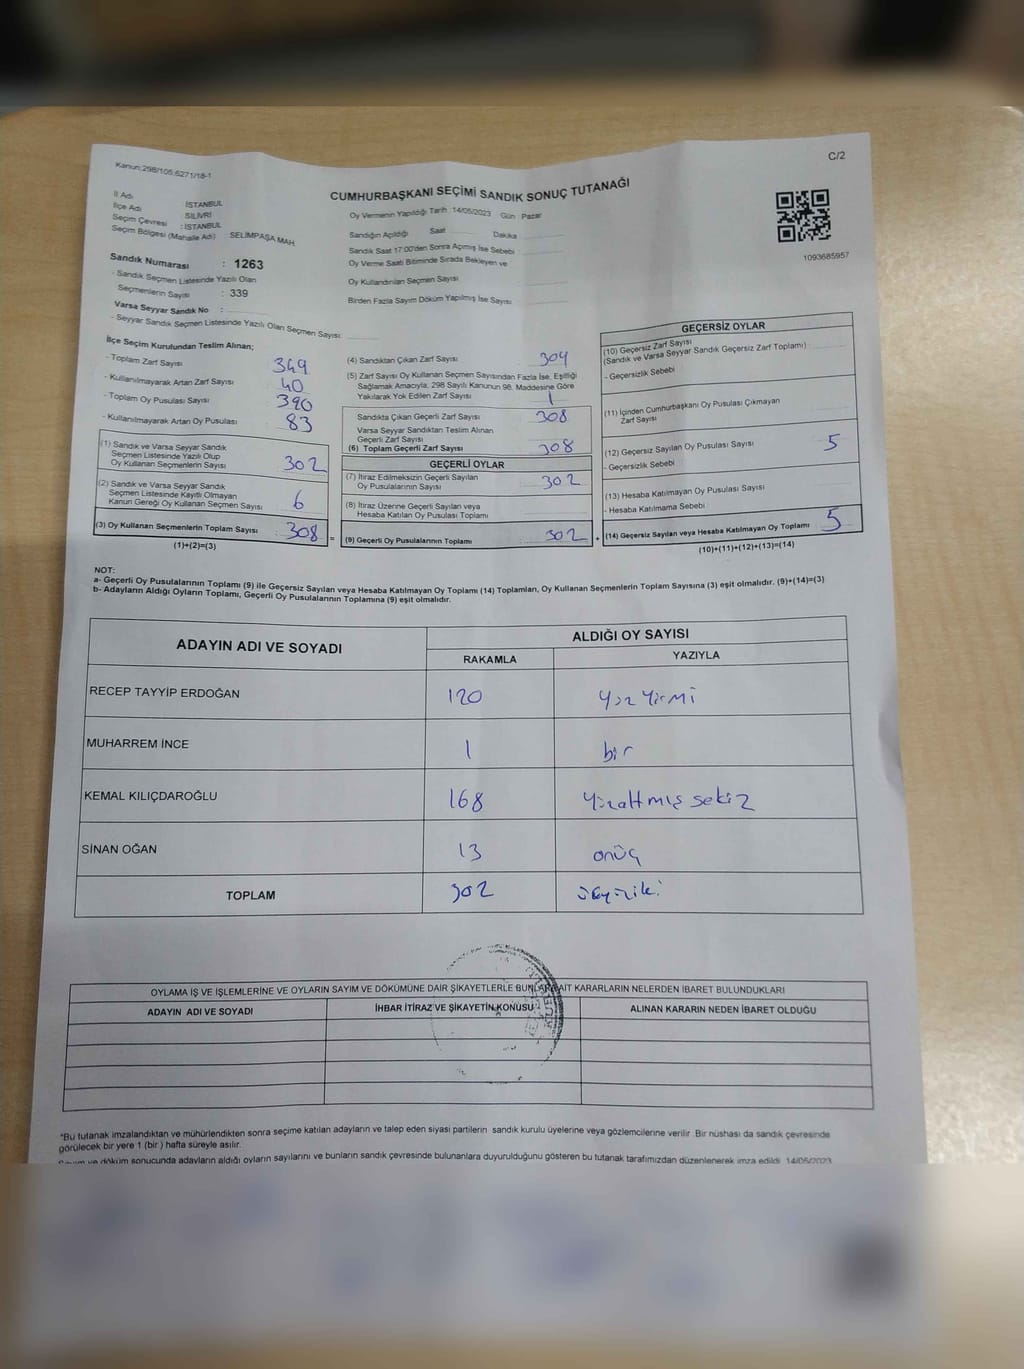 C/2
Kanun:298/105,6271/18-1
CUMHURBAŞKANI SEÇİMİ SANDIK SONUÇ TUTANAĞI
İl Adı : İSTANBUL
İlçe Adı : SİLİVRİ
Seçim Çevresi : İSTANBUL
Seçim Bölgesi (Mahalle Adı) SELİMPAŞA MAH.
Sandık Numarası : 1263
- Sandık Seçmen Listesinde Yazılı Olan
Seçmenlerin Sayısı : 339
Varsa Seyyar Sandık No :
- Seyyar Sandık Seçmen Listesinde Yazılı Olan Seçmen Sayısı:
Oy Vermenin Yapıldığı Tarih :14/05/2023 Gün : Pazar
Sandığın Açıldığı Saat Dakika
Sandık Saat 17:00'den Sonra Açılmış İse Sebebi
Oy Verme Saati Bitiminde Sırada Bekleyen ve
Oy Kullandırılan Seçmen Sayısı
Birden Fazla Sayım Döküm Yapılmış İse Sayısı
1093685957
İlçe Seçim Kurulundan Teslim Alınan;
- Toplam Zarf Sayısı 349
- Kullanılmayarak Artan Zarf Sayısı 40
- Toplam Oy Pusulası Sayısı 390
- Kullanılmayarak Artan Oy Pusulası 83
(1) Sandık ve Varsa Seyyar Sandık
Seçmen Listesinde Yazılı Olup
Oy Kullanan Seçmenlerin Sayısı 302
(2) Sandık ve Varsa Seyyar Sandık
Seçmen Listesinde Kayıtlı Olmayan
Kanun Gereği Oy Kullanan Seçmen Sayısı 6
(3) Oy Kullanan Seçmenlerin Toplam Sayısı : 308 =
(1)+(2)=(3)
(4) Sandıktan Çıkan Zarf Sayısı 309
(5) Zarf Sayısı Oy Kullanan Seçmen Sayısından Fazla İse, Eşitliği
Sağlamak Amacıyla, 298 Sayılı Kanunun 98. Maddesine Göre
Yakılarak Yok Edilen Zarf Sayısı 1
Sandıkta Çıkan Geçerli Zarf Sayısı 308
Varsa Seyyar Sandıktan Teslim Alınan
Geçerli Zarf Sayısı
(6) Toplam Geçerli Zarf Sayısı 308
GEÇERLİ OYLAR
(7) İtiraz Edilmeksizin Geçerli Sayılan
Oy Pusulalarının Sayısı 302
(8) İtiraz Üzerine Geçerli Sayılan veya
Hesaba Katılan Oy Pusulası Toplamı
(9) Geçerli Oy Pusulalarının Toplamı 302 +
GEÇERSİZ OYLAR
(10) Geçersiz Zarf Sayısı
(Sandık ve Varsa Seyyar Sandık Geçersiz Zarf Toplamı)
- Geçersizlik Sebebi
(11) İçinden Cumhurbaşkanı Oy Pusulası Çıkmayan
Zarf Sayısı
(12) Geçersiz Sayılan Oy Pusulası Sayısı 5
- Geçersizlik Sebebi
(13) Hesaba Katılmayan Oy Pusulası Sayısı
- Hesaba Katılmama Sebebi
(14) Geçersiz Sayılan veya Hesaba Katılmayan Oy Toplamı 5
(10)+(11)+(12)+(13)=(14)
NOT:
a- Geçerli Oy Pusulalarının Toplamı (9) ile Geçersiz Sayılan veya Hesaba Katılmayan Oy Toplamı (14) Toplamları, Oy Kullanan Seçmenlerin Toplam Sayısına (3) eşit olmalıdır. (9)+(14)=(3)
b- Adayların Aldığı Oyların Toplamı, Geçerli Oy Pusulalarının Toplamına (9) eşit olmalıdır.
ADAYIN ADI VE SOYADI ALDIĞI OY SAYISI
RAKAMLA YAZIYLA
RECEP TAYYİP ERDOĞAN 120 Yüz Yirmi
MUHARREM İNCE 1 bir
KEMAL KILIÇDAROĞLU 168 Yüzaltmış sekiz
SİNAN OĞAN 13 onüç
TOPLAM 302 üçyüziki
OYLAMA İŞ VE İŞLEMLERİNE VE OYLARIN SAYIM VE DÖKÜMÜNE DAİR ŞİKAYETLERLE BUNLARA AİT KARARLARIN NELERDEN İBARET BULUNDUKLARI
ADAYIN ADI VE SOYADI İHBAR İTİRAZ VE ŞİKAYETİN KONUSU ALINAN KARARIN NEDEN İBARET OLDUĞU
*Bu tutanak imzalandıktan ve mühürlendikten sonra seçime katılan adayların ve talep eden siyasi partilerin sandık kurulu üyelerine veya gözlemcilerine verilir. Bir nüshası da sandık çevresinde
görülecek bir yere 1 (bir ) hafta süreyle asılır.
Sayım ve döküm sonucunda adayların aldığı oyların sayılarını ve bunların sandık çevresinde bulunanlara duyurulduğunu gösteren bu tutanak tarafımızdan düzenlenerek imza edildi. 14/05/2023